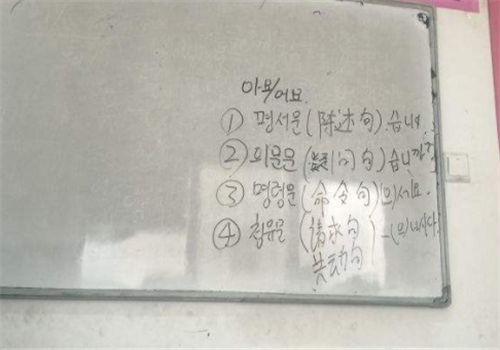 아요/어요
① 평서문(陈述句) 습니다.
② 의문문(疑问句) 습니까?
③ 명령문(命令句)(으)세요.
④ 청유문(请求句 -(으)ㅂ시다
共动句